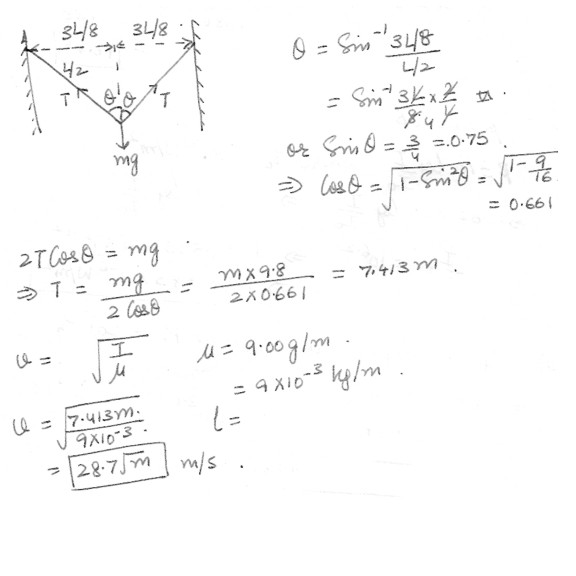 3L/8 3L/8
L/2
T θ θ T
mg
θ = Sin⁻¹ 3L/8 / L/2
= Sin⁻¹ 3L/8 × 2/L
or Sinθ = 3/4 = .0.75
⇒ Cosθ = √(1-Sin²θ) = √(1-9/16)
= 0.661
2T Cosθ = mg
⇒ T = mg / 2 Cosθ = m×9.8 / 2×0.661 = 7.413 m.
v = √(T/μ) μ = 9.00 g/m.
= 9×10⁻³ kg/m.
v = √(7.413m. / 9×10⁻³.) l =
= 28.7√m m/s.